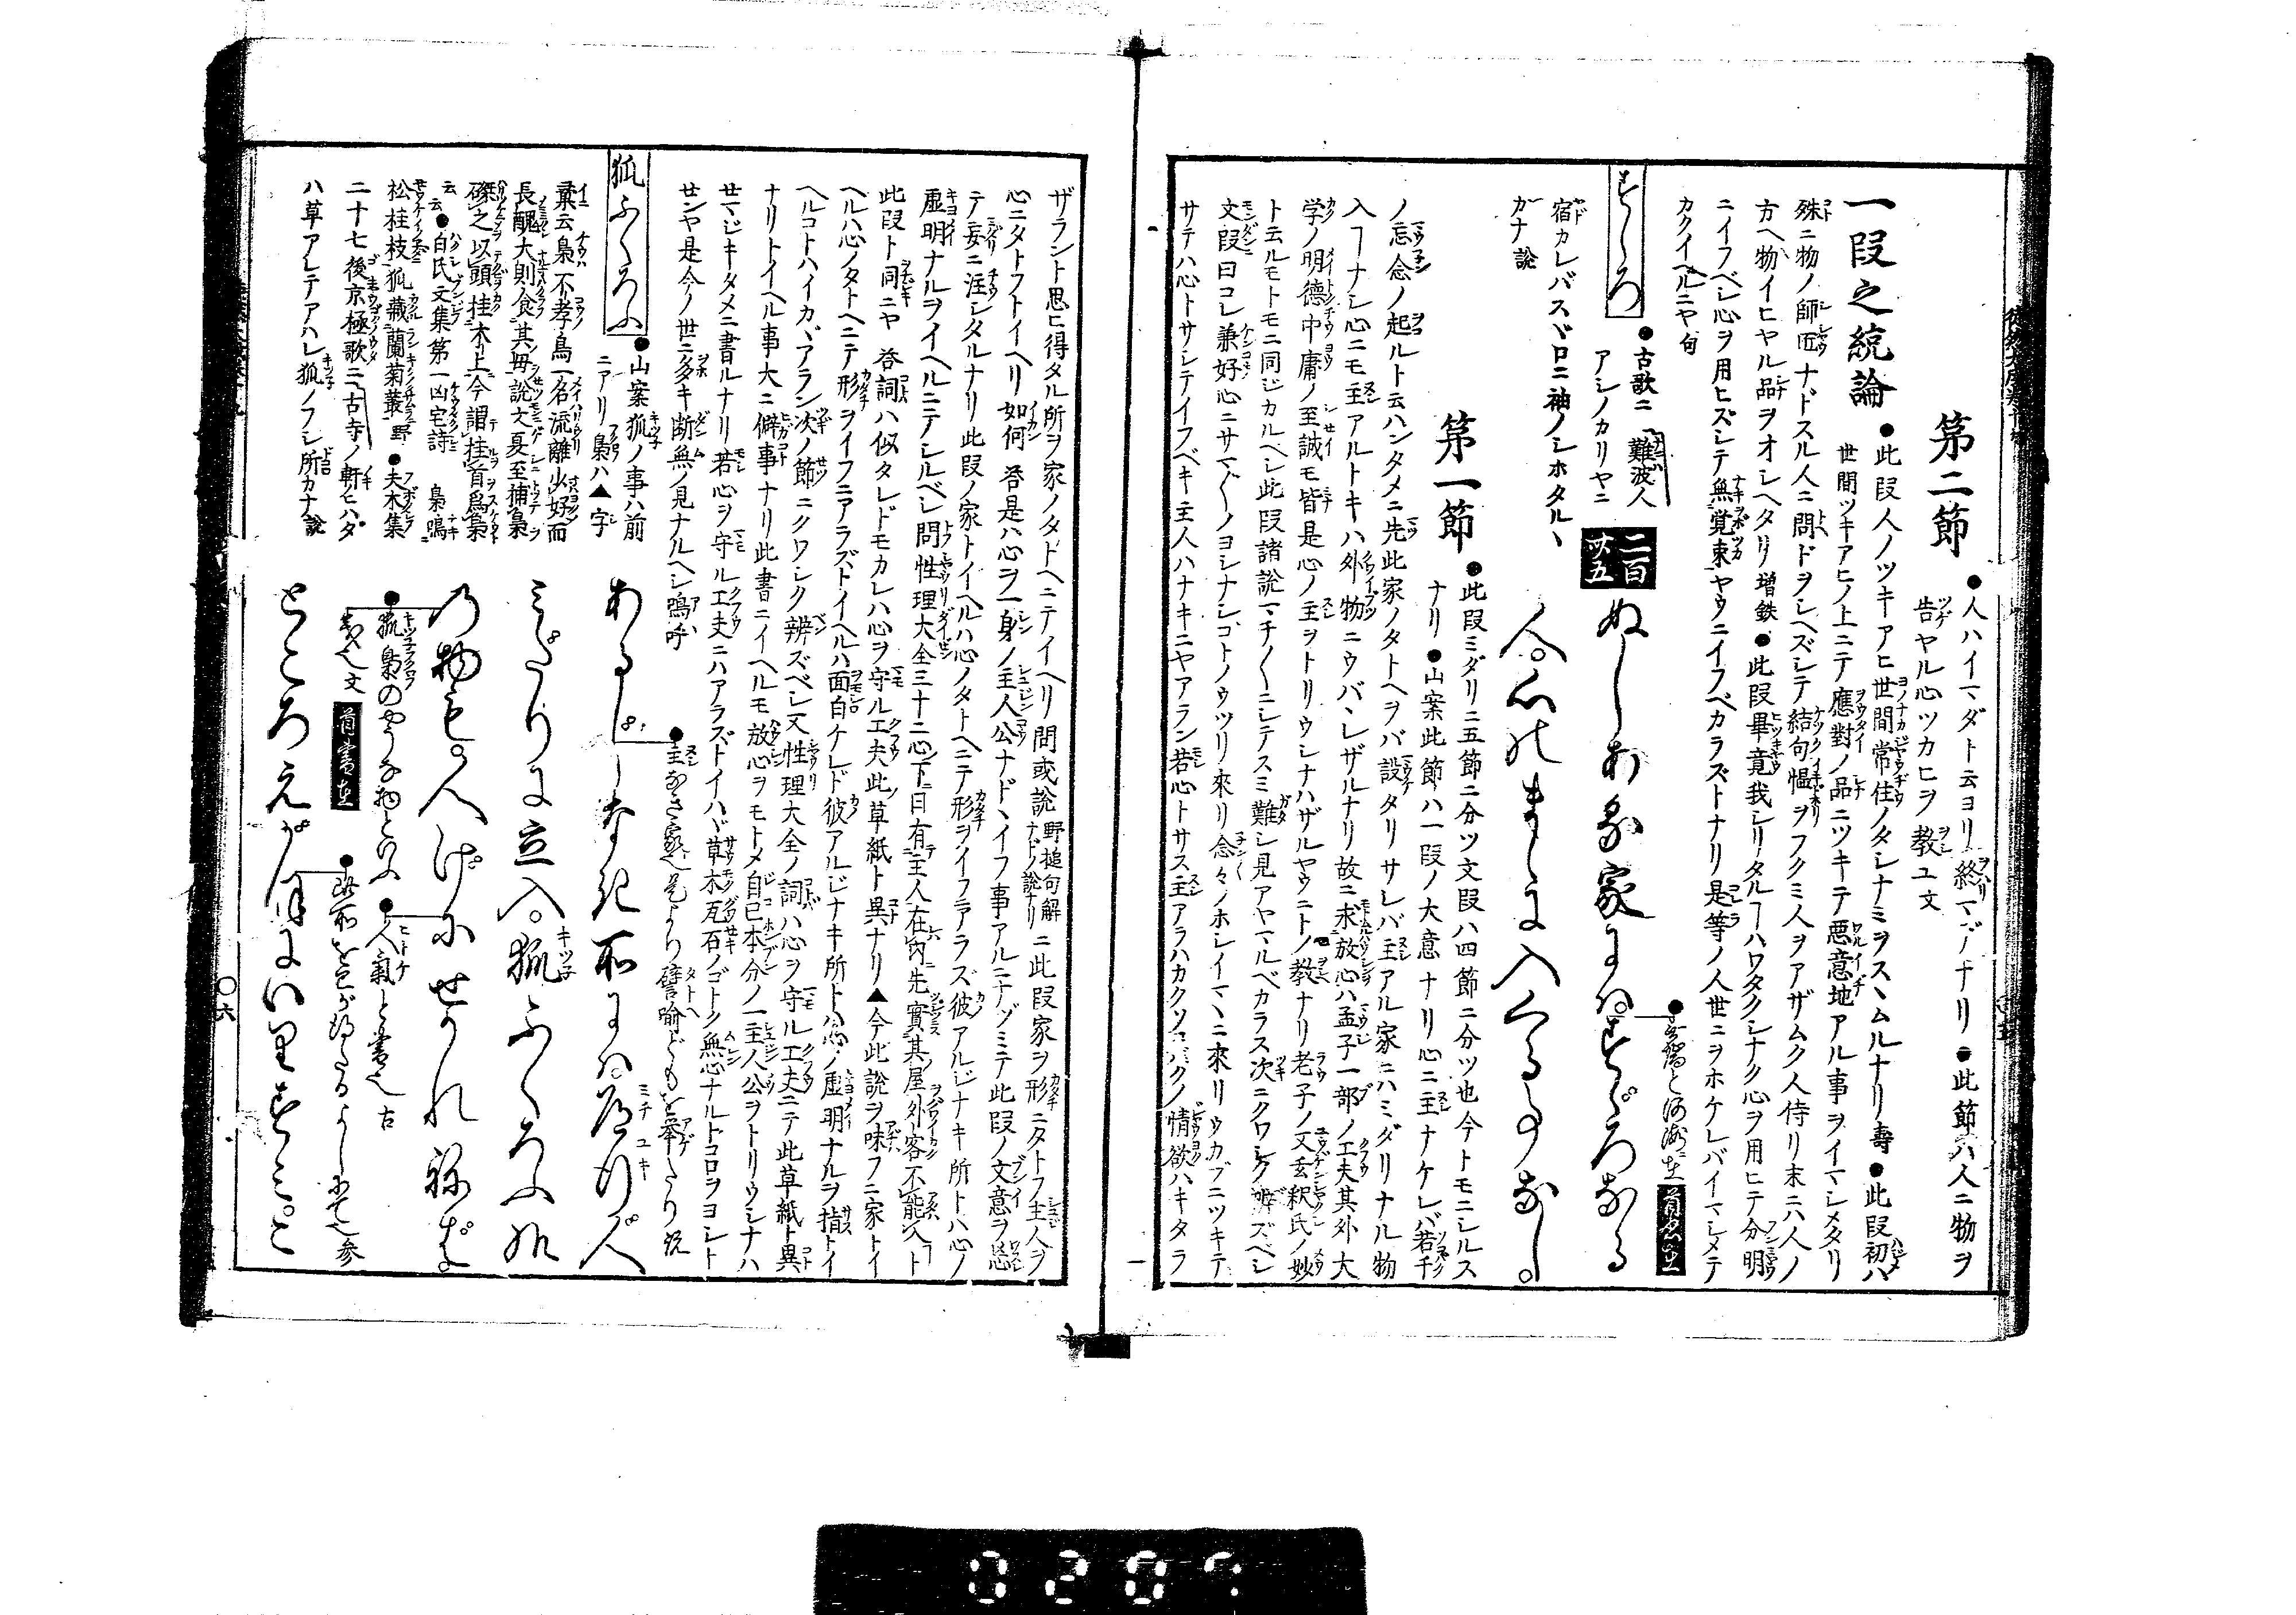 第二節
●人ハイマダト云ヨリ終マデナリ●此節ハ人ニ物ヲ
告ヤル心ツカヒヲ教ユ文
一段之統論
●此段人ノツキアヒ世間常住ノタシナミヲスヽムルナリ壽●此段初ハ
世間ツキアヒノ上ニテ應對ノ品ニツキテ悪意地アル事ヲイマシメタリ
殊ニ物ノ師匠ナドスル人ニ問ドヲシヘズシテ結句慍ヲフクミ人ヲアザムク人侍リ末ニハ人ノ
方ヘ物イヒヤル品ヲオシヘタリ増鉄●此段畢竟我シリタルヿハワタクシナク心ヲ用ヒテ分明
ニイフベシ心ヲ用ヒズシテ無覚束ヤウニイフベカラズトナリ是等ノ人世ニヲホケレバイマシメテ
カクイヘルニヤ句
すゞろ
●古歌ニ難波人
アシノカリヤニ
宿カレバスヾロニ袖ノシホタルヽ
カナ説
二百卅五
ぬしある家にはすゞろなる
人。心のまゝに入くる事なし。
第一節
●此段ミダリニ五節ニ分ツ文段ハ四節ニ分ツ也今トモニシルス
ナリ●山案此節ハ一段ノ大意ナリ心ニ主ナケレバ若干
ノ忘念ノ起ルト云ハンタメニ先此家ノタトヘヲバ設タリサレバ主アル家ニハミダリナル物
入ヿナシ心ニモ主アルトキハ外物ニウバヽレザルナリ故ニ求放心ハ孟子一部ノ工夫其外大
学ノ明德中庸ノ至誠モ皆是心ノ主ヲトリウシナハザルヤウニトノ教ナリ老子ノ又玄釈氏ノ妙
ト云ルモトモニ同ジカルヘシ此段諸説マチ〳〵ニシテスミ難シ見アヤマルベカラス次ニクワシク辨ズベシ
文段曰コレ兼好心ニサマ〴〵ノヨシナシゴトノウツリ來リ念々ノホシイマヽニ來リウカブニツキテ
サテハ心トサシテイフベキ主人ハナキニヤアラン若心トサス主アラハカクソコバクノ情欲ハキタラ
ザラント思ヒ得タル所ヲ家ノタトヘニテイヘリ問或説野槌句解ナドノ説ナリニ此段家ヲ形ニタトフ主人ヲ
心ニタトフトイヘリ如何答是ハ心ヲ一身ノ主人公ナドヽイフ事アルニナヅミテ此段ノ文意ヲ
テ妄ニ注シタルナリ此段ノ家トイヘルハ心ノタトヘニテ形ヲイフニアラズ彼アルジナキ所トハ心ノ
虚明ナルヲイヘルニテシルベシ問性理大全三十二心下ニ曰有主人在内先實其屋外客不能入ト
此段ト同ニヤ答詞ハ似タレドモカレハ心ヲ守ル工夫此草紙ト異ナリ▲今此説ヲ味フニ家トイ
ヘルハ心ノタトヘニテ形ヲイフニアラズトイヘルハ面白ケレド彼アルジナキ所トハ心ノ虚明ナルヲ指トイ
ヘルコトハイカヾアラン次ノ節ニクワシク辨ズベシ又性理大全ノ詞ハ心ヲ守ル工夫ニテ此草紙ト異
ナリトイヘル事大ニ僻事ナリ此書ニイヘルモ放心ヲモトメ自己本分ノ一主人公ヲトリウシナハ
セマジキタメニ書ルナリ若心ヲ守ル工夫ニハアラズトイハヾ草木瓦石ノゴトク無心ナルトコロヲヨシト
センヤ是今ノ世ニ多キ断無ノ見ナルヘシ嗚呼
あるじなき所には道行人
●主なき家也是より譬喩どもを挙たり説
みだりに立入。狐ふくろふ
の物も。人げにせかれねば
ところえがほにいりすみこ
狐ふくろふ
●山案狐ノ事ハ前
ニアリ梟ハ▲字
彙云梟不孝鳥一名流離少好而
長醜大則食其母説文夏至捕梟
磔之以頭挂木上今謂挂首爲梟
云云●白氏文集第一凶宅詩梟鳴
松桂枝狐藏蘭菊叢野●夫木集
二十七後京極歌ニ古寺ノ軒ヒハダ
ハ草アレテアハレ狐ノフシ所カナ説
●狐梟のやうな物と也
●人氣と書也古